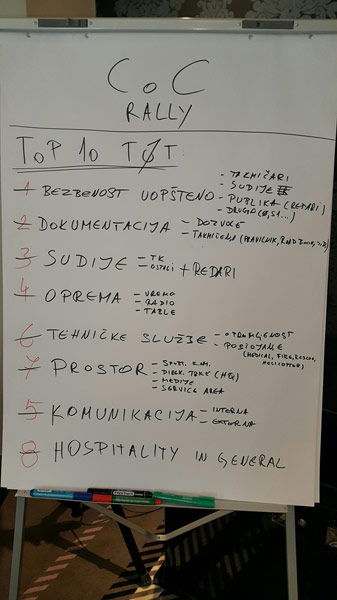 CoC
RALLY
TOP 10 TØT:
1 BEZBENOST UOPŠTENO - TAKMIČARI
- SUDIJE
- PUBLIKA (REDARI)
- DRUGO
2 DOKUMENTACIJA - DOZVOLE
- TAKMIČENJA (PRAVILNIK,
3 SUDIJE - TK
- OSTALI + REDARI
4 OPREMA - VREME
- RADIO
- TABLE
6 TEHNIČKE SLUŽBE - OPREMLJENOST
- POZICIJE
(MEDICAL, FIRE, RESCUE,
HELICOPTER)
7 PROSTOR - SPORT. KOM.
- DIREK. TRKE (HQ)
- MEDIJI
- SERVICE AREA
5 KOMUNIKACIJA - INTERNA
- EXTERNA
8 HOSPITALITY IN GENERAL